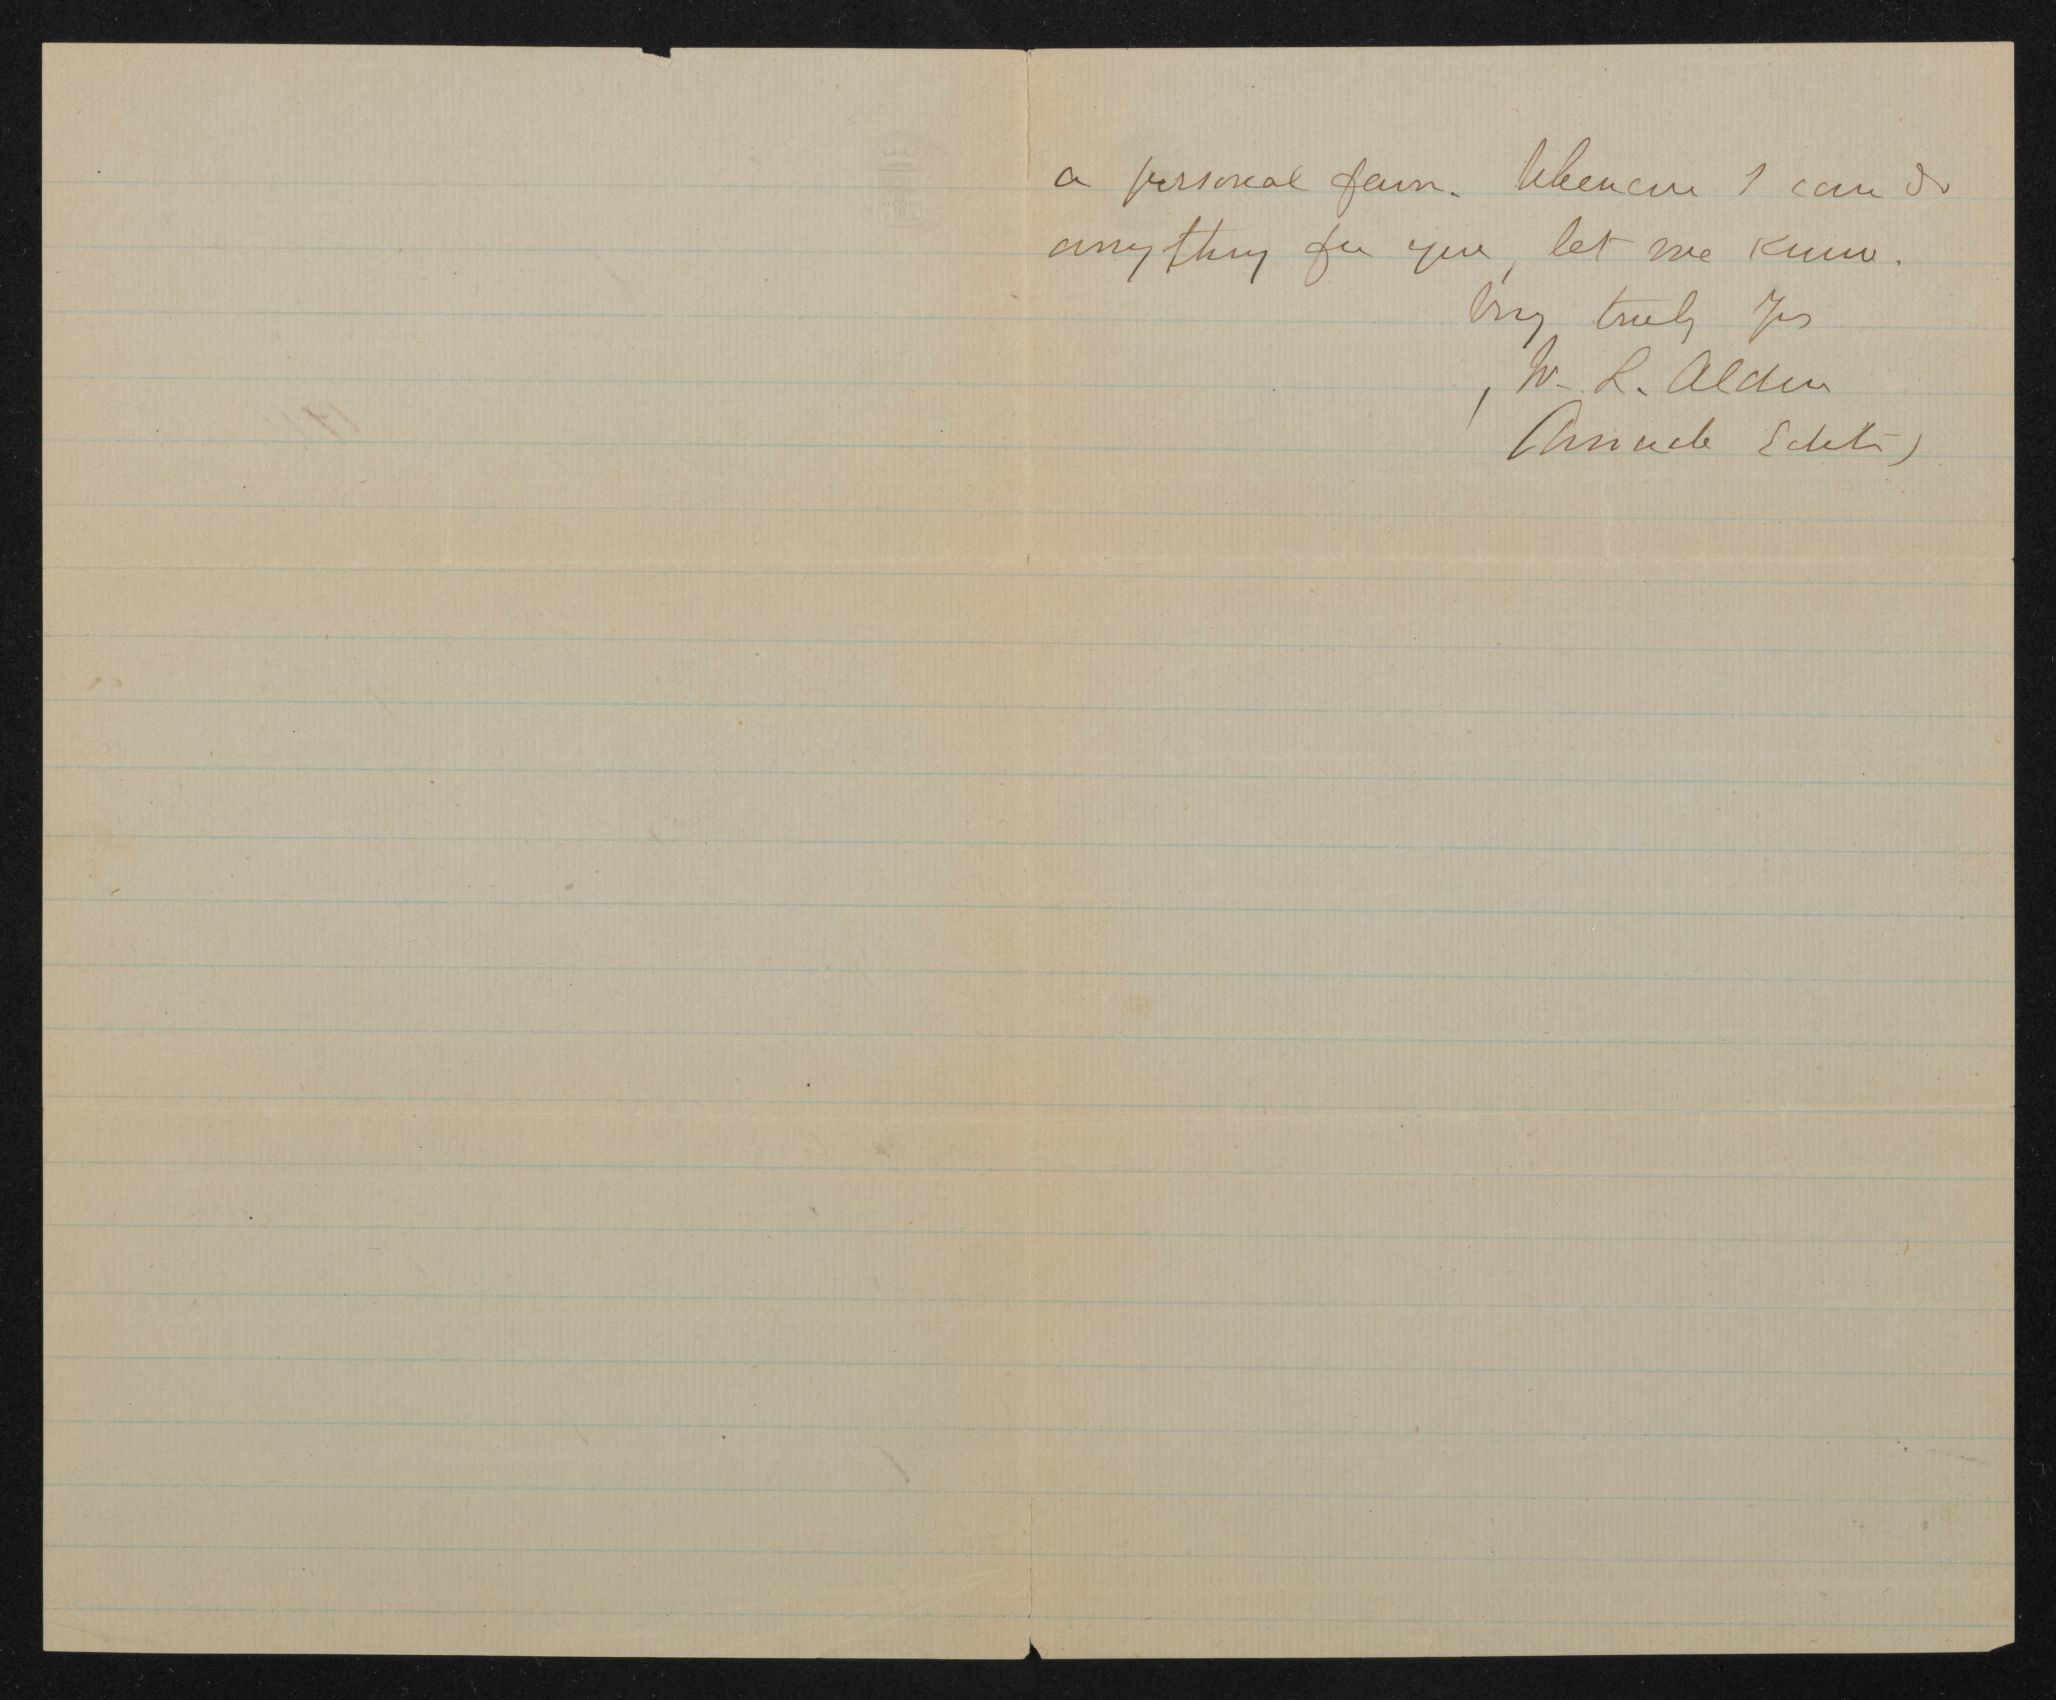 a personal favor. Whenever I can do
anything for you, let me know.
Very truly Yrs
W. L. Alden